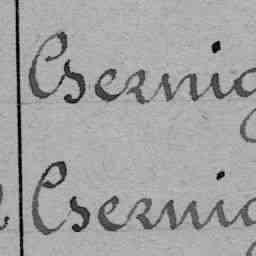 Csernig
Csernig